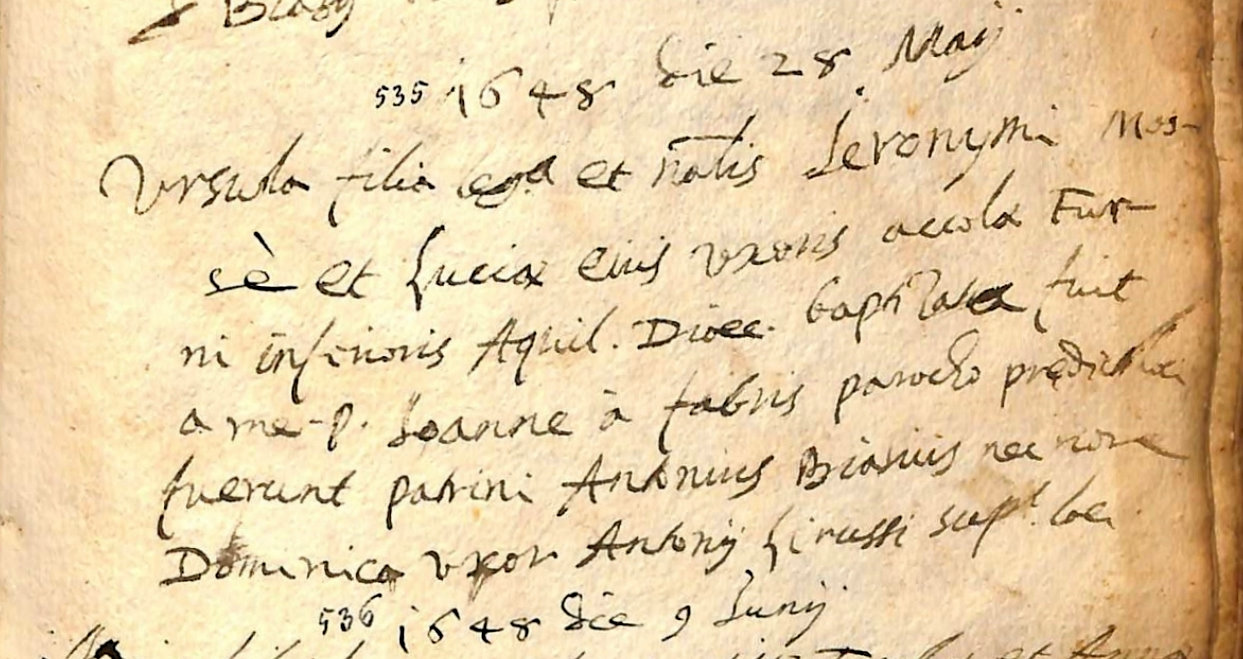 535 1648 die 28 Maij
Ursula filia leg.a et nalis Ieronymi Mos-
sè et Luciæ eius uxoris accola Fur-
ni inferioris Aquil. Dioec. baptizata fuit
a me P. Ioanne à fabris parocho predicti loci
fuerunt patrini Antonius Brianis nec non
Dominica uxor Antonij supt. loci
536 1648 die 9 Iunij
et Anna